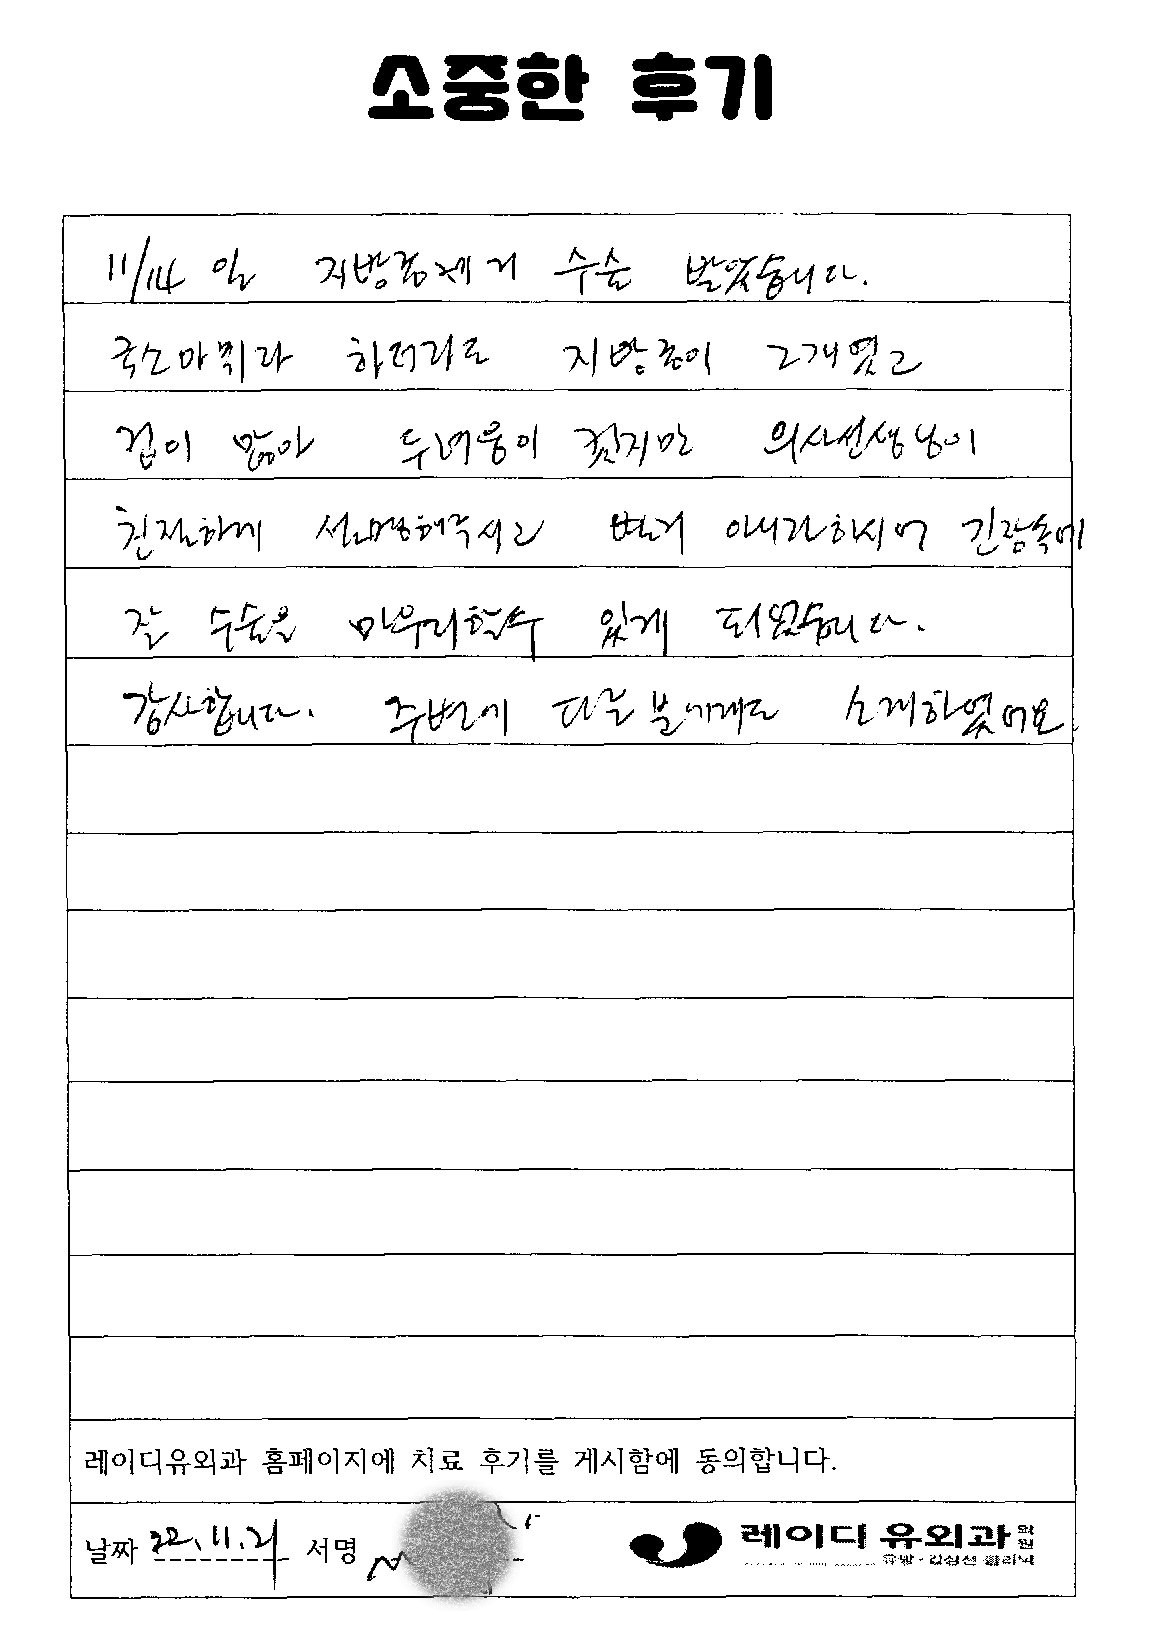 소중한 후기
11/14 일 지방종제거 수술 받았습니다.
국소마취라 하더라도 지방종이 2개였고
겁이 많아 두려움이 컸지만 의사선생님이
친절하게 설명해주시고 별거 아니라하시어 긴장속에
잘 수술을 마무리할수 있게 되었습니다.
감사합니다. 주변에 다른 분에게도 소개하였어요.
레이디유외과 홈페이지에 치료 후기를 게시함에 동의합니다.
날짜 22.11.21 서명
레이디 유외과 의원
유방·갑상선 클리닉